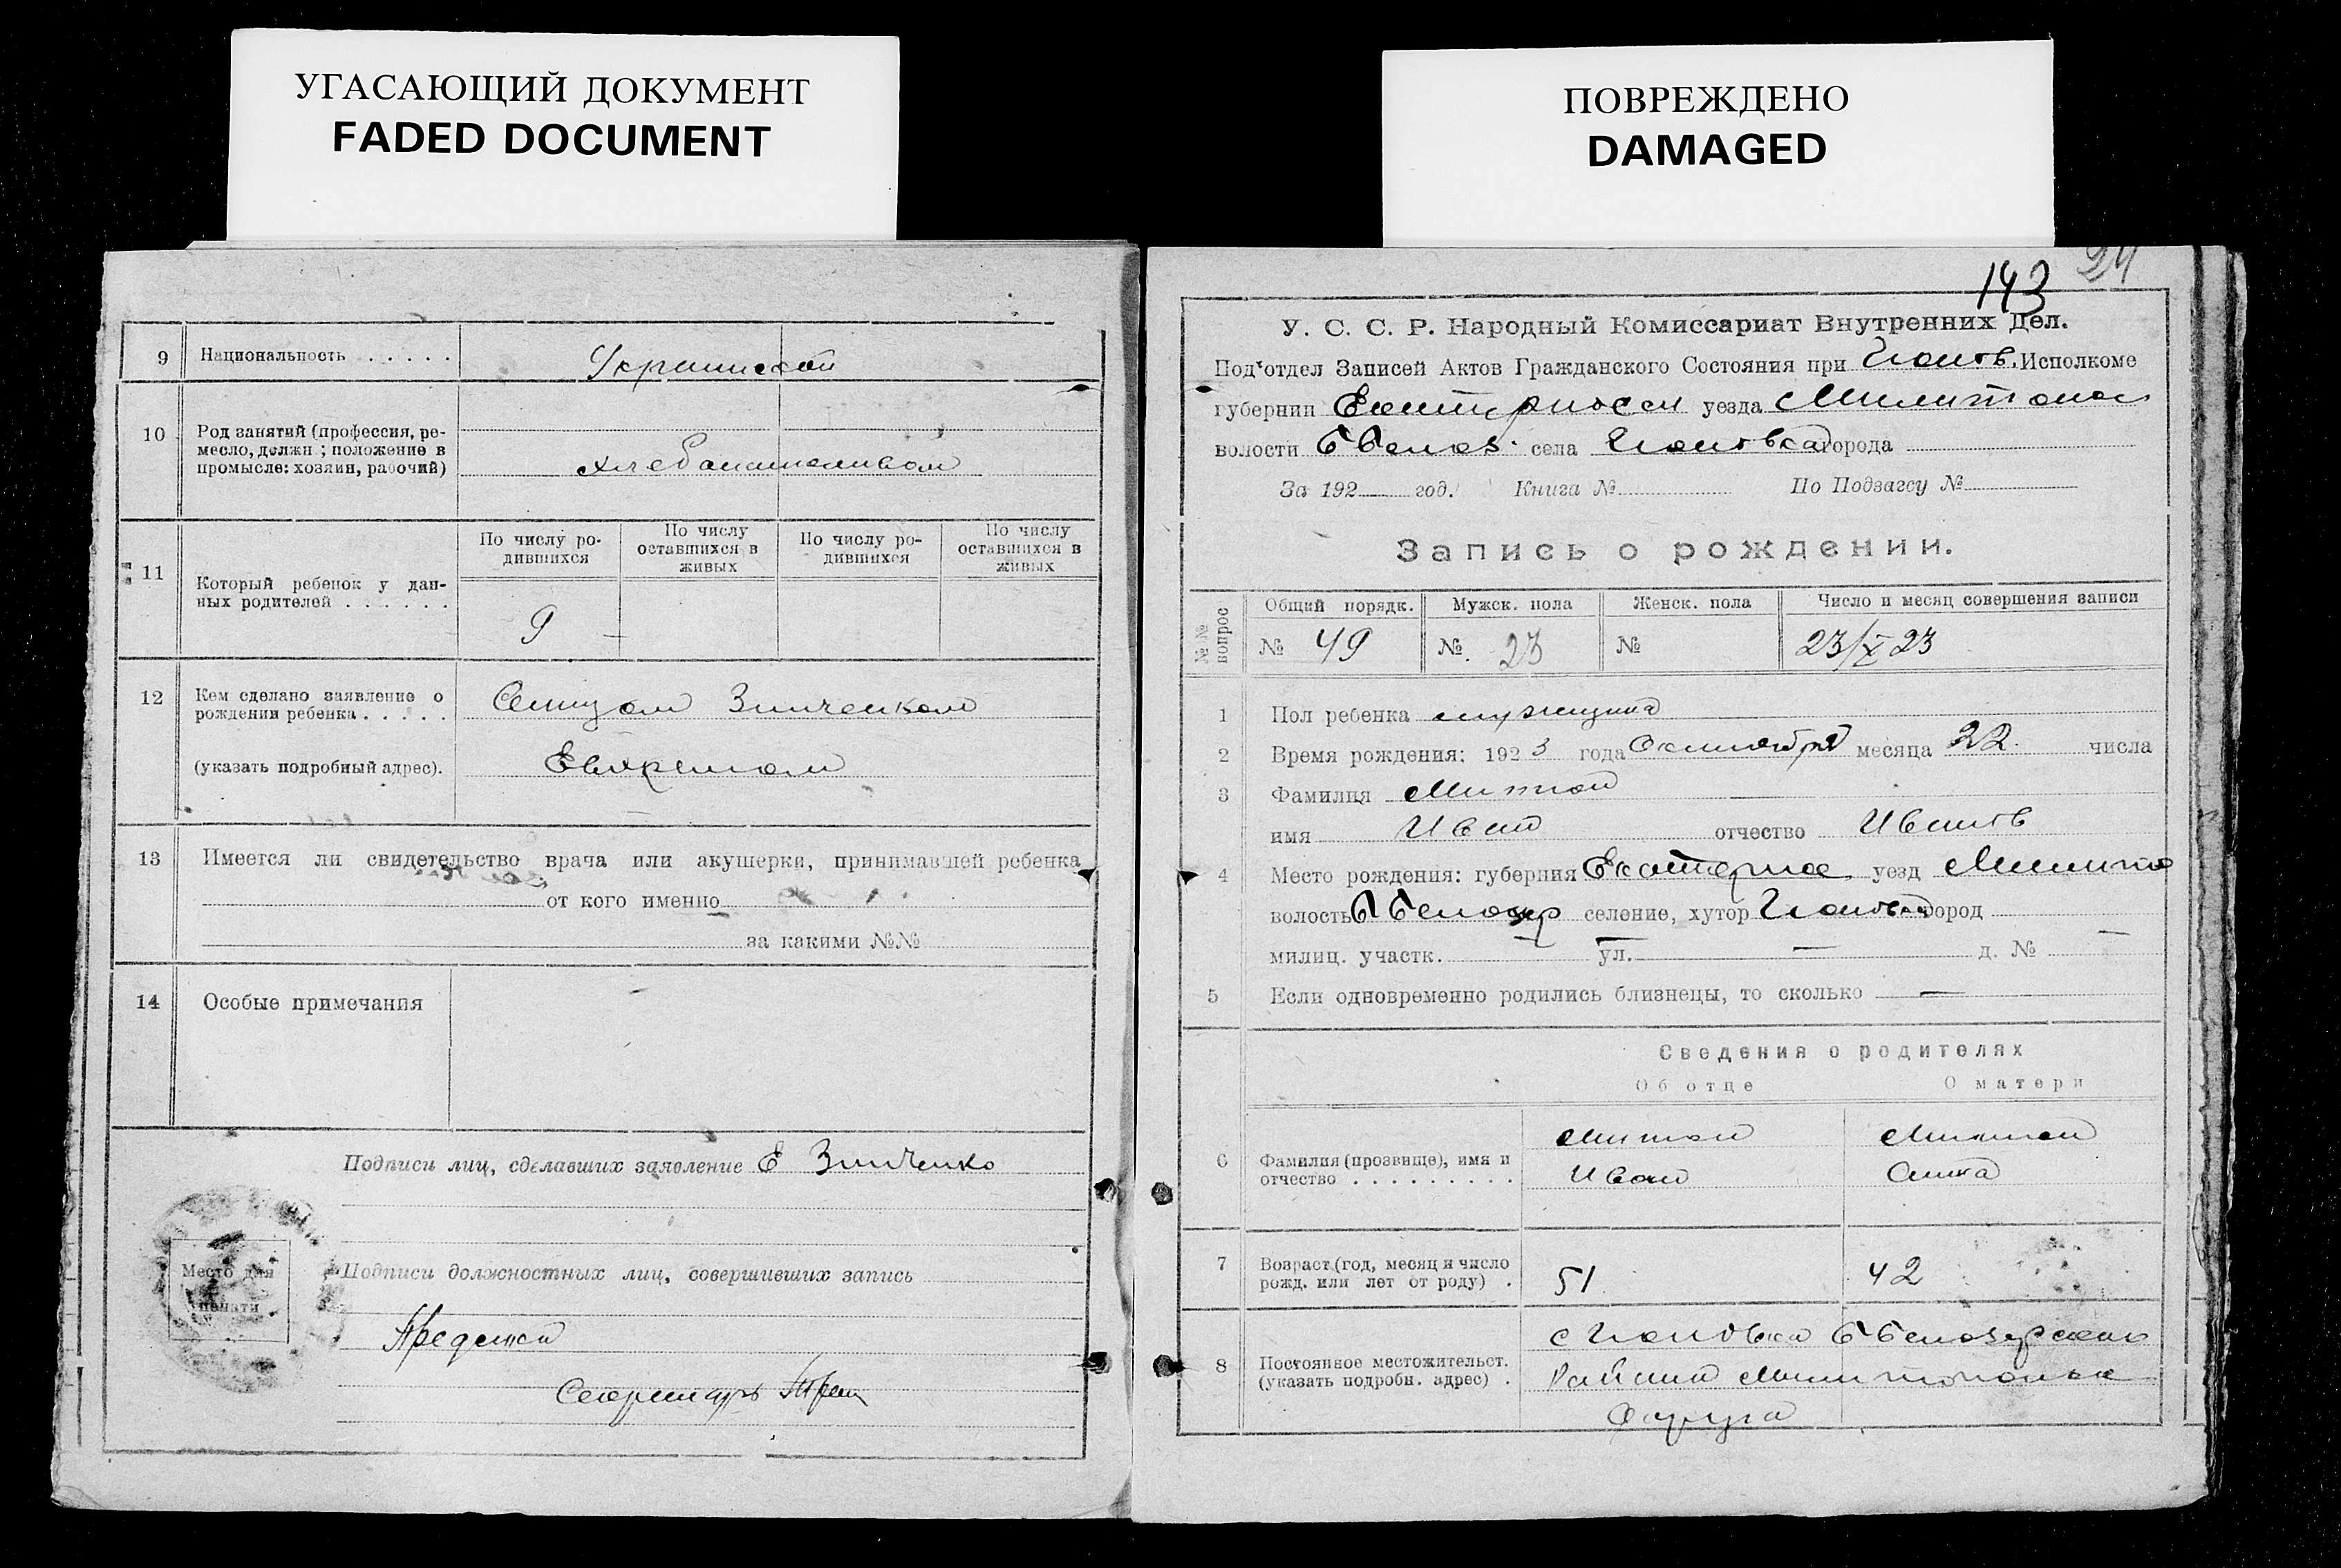 УГАСАЮЩИЙ ДОКУМЕНТ
FADED DOCUMENT
ПОВРЕЖДЕНО
DAMAGED
9 Национальность . . . . . Украинской
10 Род занятий (профессия, ре-
месло, должн; положение в
промысле: хозяин, рабочий)
11 Который ребенок у дан-
ных родителей . . . . . .
По числу ро-
дившихся
По числу
оставшихся в
живых
По числу ро-
дившихся
По числу
оставшихся в
живых
9
12 Кем сделано заявление о
рождении ребенка . . . . .
(указать подробный адрес).
Отцом Зинченком
13 Имеется ли свидетельство врача или акушерки, принимавшей ребенка
от кого именно
за какими №№
14 Особые примечания
Подписи лиц, сделавших заявление Е Зинченко
Место для
печати
Подписи должностных лиц, совершивших запись
Секретарь
143 24
У. С. С. Р. Народный Комиссариат Внутренних Дел.
Под'отдел Записей Актов Гражданского Состояния при Исполкоме
губернии уезда
волости Б Белоз. села города
За 192 год. Книга № По Подзагсу №
Запись о рождении.
№№ вопрос
Общий порядк. Мужск. пола Женск. пола Число и месяц совершения записи
№ 49 №. 23 № 23/X 23
1 Пол ребенка мужщина
2 Время рождения: 1923 года Октября месяца 22 числа
3 Фамилия
имя Иван отчество Иванов
4 Место рождения: губерния уезд
волость Б Белозер селение, хутор город
милиц. участк. — ул. — д. № —
5 Если одновременно родились близнецы, то сколько —
Сведения о родителях
Об отце О матери
6 Фамилия (прозвище), имя и
отчество . . . . . . . . .
Иван Анна
7 Возраст (год, месяц и число
рожд. или лет от роду) .
51 42
8 Постоянное местожительст.
(указать подробн. адрес) .
Б Белозерского
Района
Округа